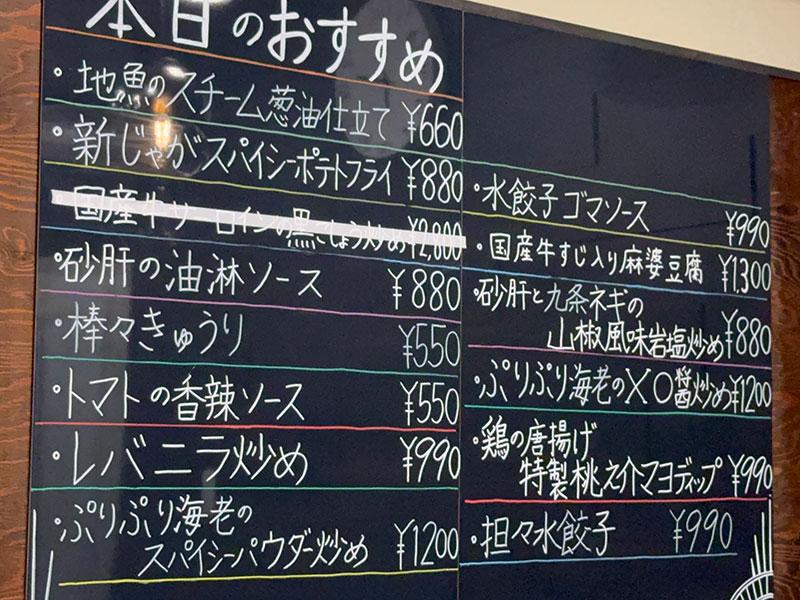 本日のおすすめ
・地魚のスチーム葱油仕立て ¥660
・新じゃがスパイシーポテトフライ ¥880
国産牛サーロインの黒こしょう炒め ¥2,000
・砂肝の油淋ソース ¥880
・棒々きゅうり ¥550
・トマトの香辣ソース ¥550
・レバニラ炒め ¥990
・ぷりぷり海老の
スパイシーパウダー炒め ¥1200
・水餃子ゴマソース ¥990
・国産牛すじ入り麻婆豆腐 ¥1,300
・砂肝と九条ネギの
山椒風味岩塩炒め ¥880
・ぷりぷり海老のXO醤炒め ¥1200
・鶏の唐揚げ
特製桃マヨディップ ¥990
・担々水餃子 ¥990